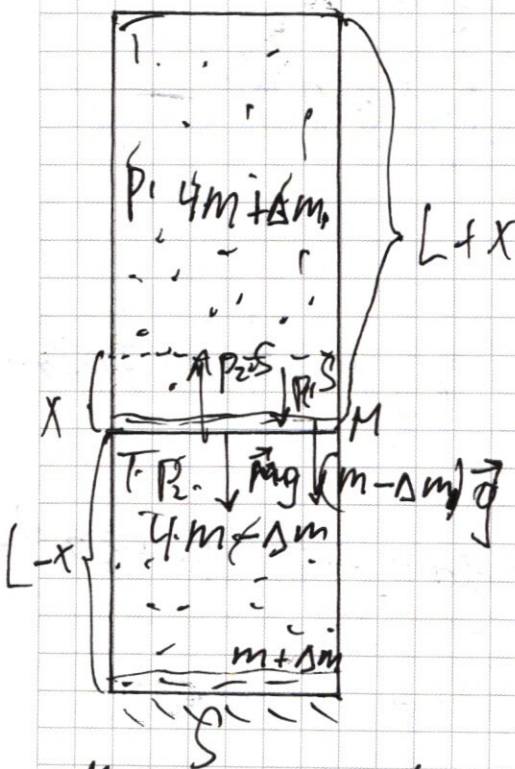 1.
p₁ 4m+Δm
L+x
x
p₂S
p₁S
M
T. p₂.
Mg
(m-Δm)g
4m-Δm
L-x
m+Δm
S